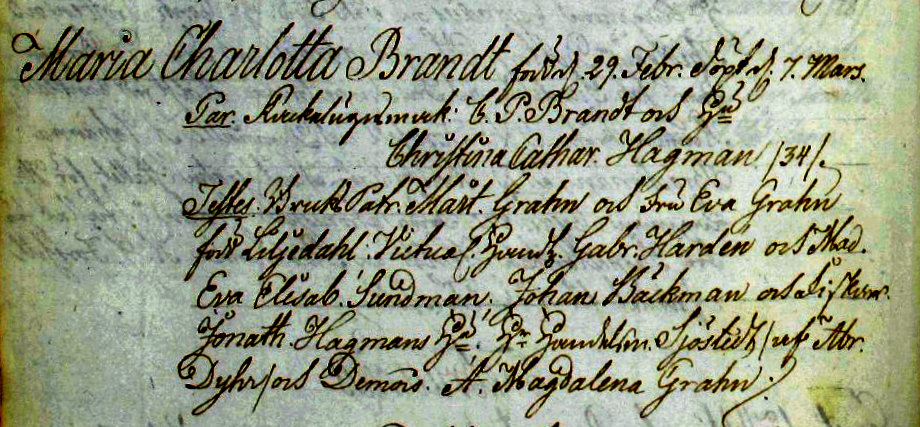 Maria Charlotta Brandt född d. 29. Febr. döpt d. 7. Mars.
Par. Kakelugnsmak. C. P. Brandt och Hu
Christina Cathar. Hagman /34/.
Testes. Bruks Patr. Mårt. Grahn och Fru Eva Grahn
född Liljedahl. Handl. Gabr. Hardén och Mad.
Eva Elisab. Sundman. Johan Bäckman och
Jonath. Hagmans Hu. Hr Handelsm. Sjöstedt / Abr.
Dyhr/ och Demois. A. Magdalena Grahn.